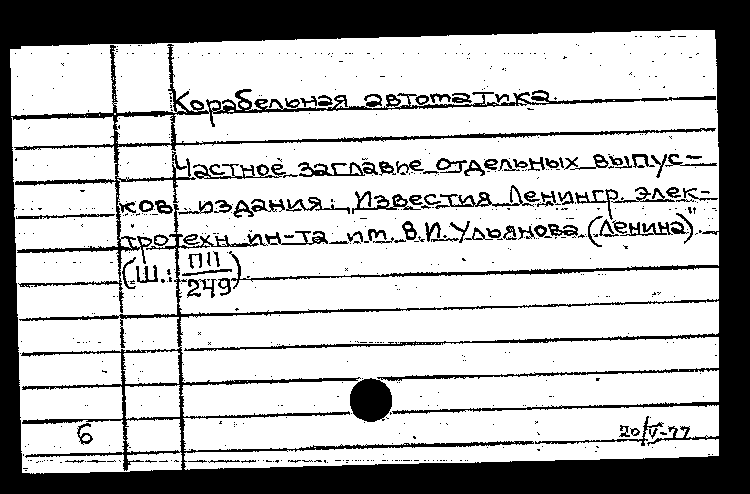 Корабельная автоматика.
Частное заглавье отдельных выпус-
ков издания: „Известия Ленингр. элек-
тротехн. ин-та им. В.И. Ульянова (Ленина)".
(Ш.: ПII/249)
6
20/V-77